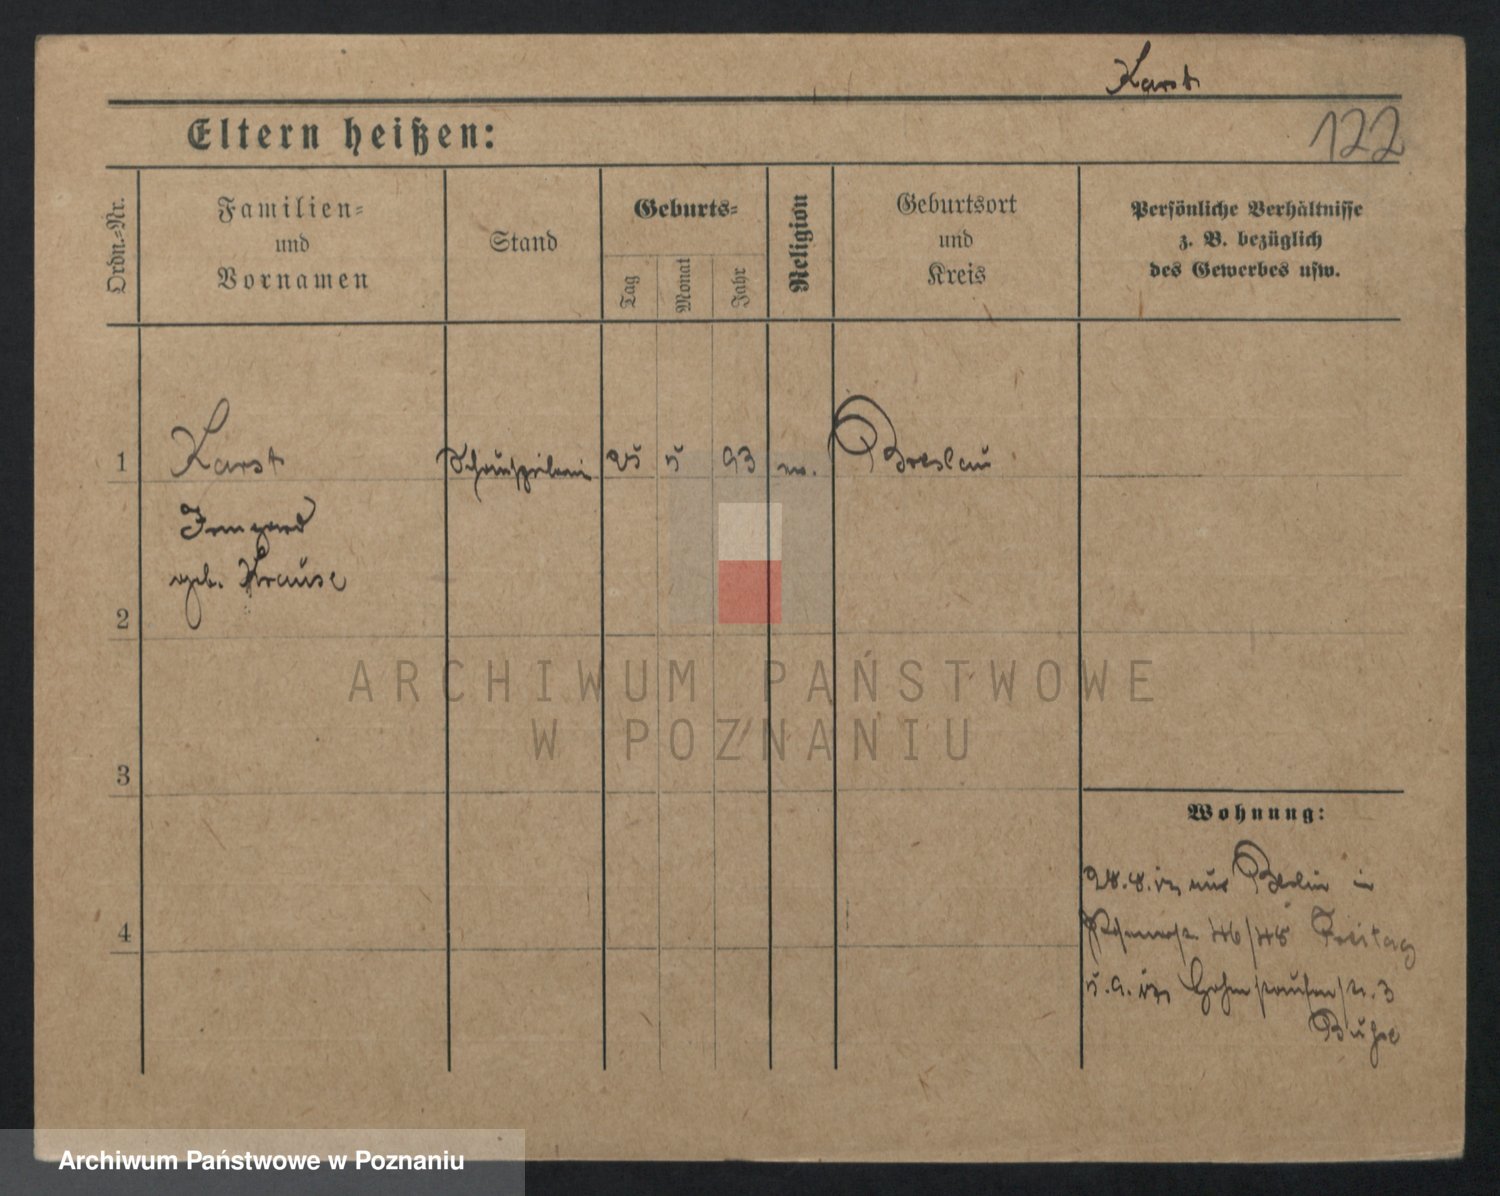 Karst
Eltern heißen:
122
Ordn.-Nr.
Familien-
und
Vornamen
Stand
Geburts-
Tag
Monat
Jahr
Religion
Geburtsort
und
Kreis
Persönliche Verhältnisse
z. B. bezüglich
des Gewerbes usw.
1
Karst
Schauspielerin
25
5
93
Breslau
Irmgard
geb. Krause
2
ARCHIWUM PAŃSTWOWE
W POZNANIU
3
Wohnung:
28.8. aus Berlin in
46/48 Freitag
4
5.9. Hohenstaufenstr. 3
Archiwum Państwowe w Poznaniu